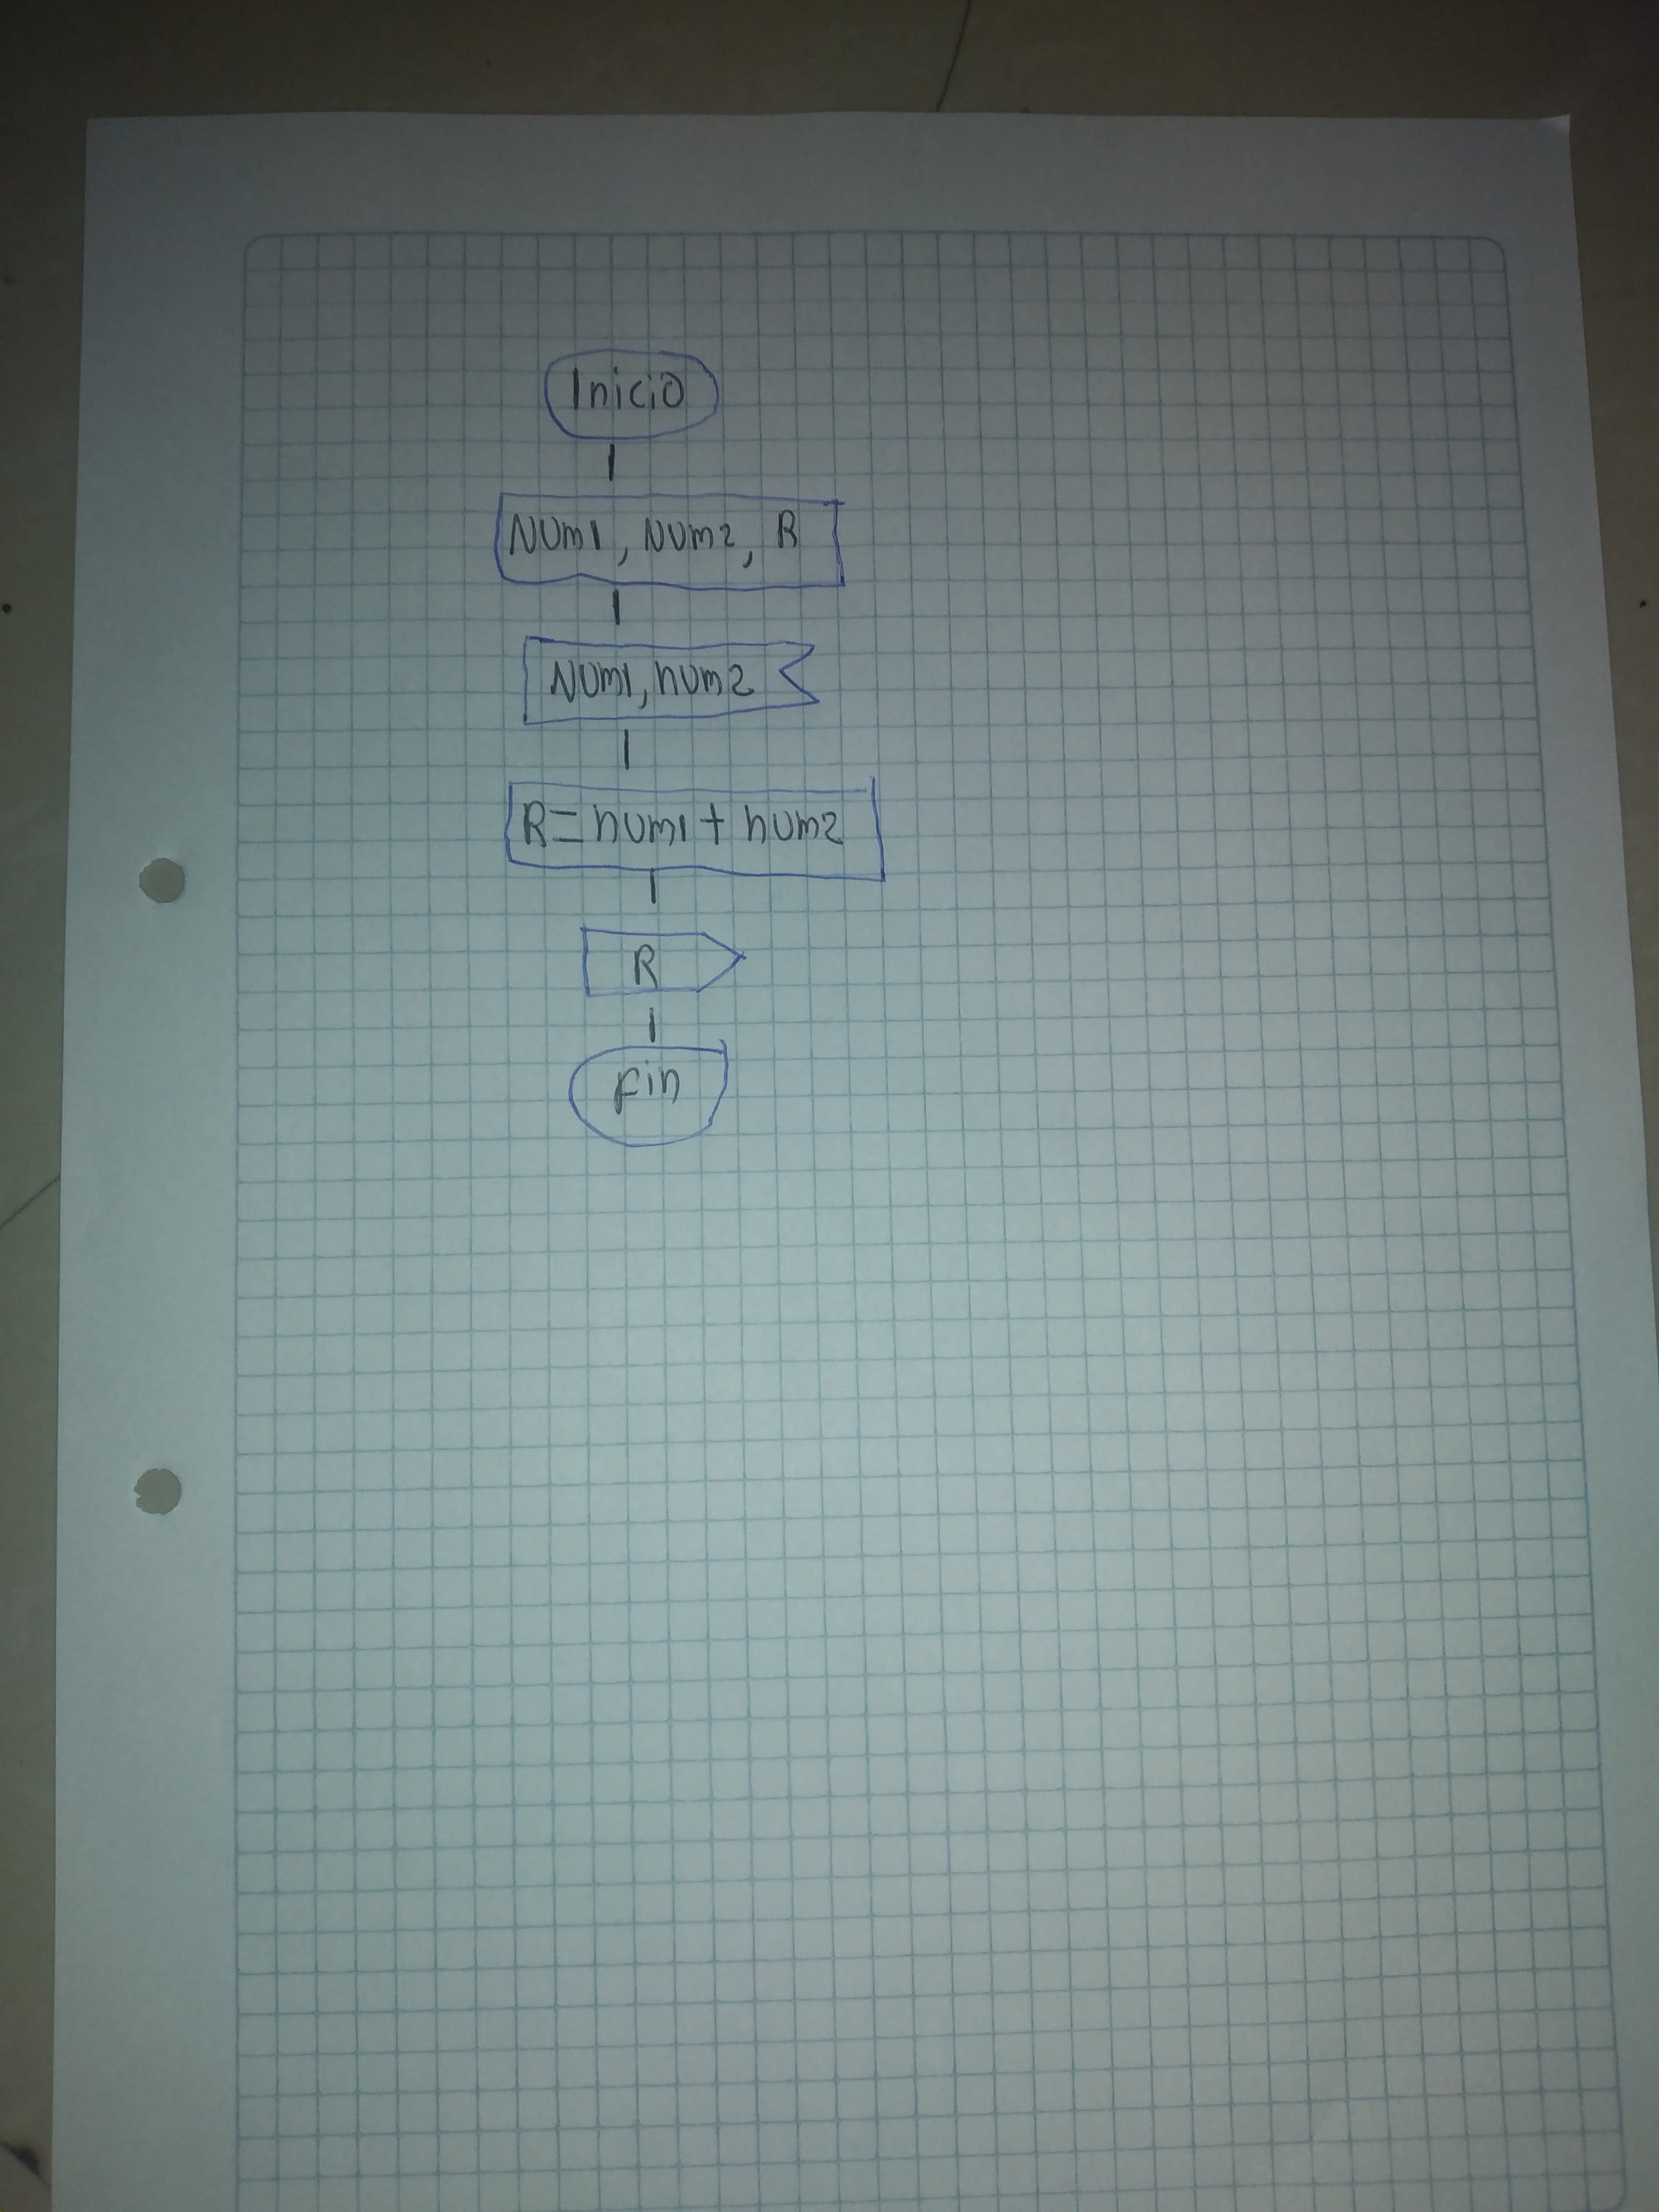 Inicio
Num1, Num2, R
Num1, num2
R= num1 + num2
R
Fin